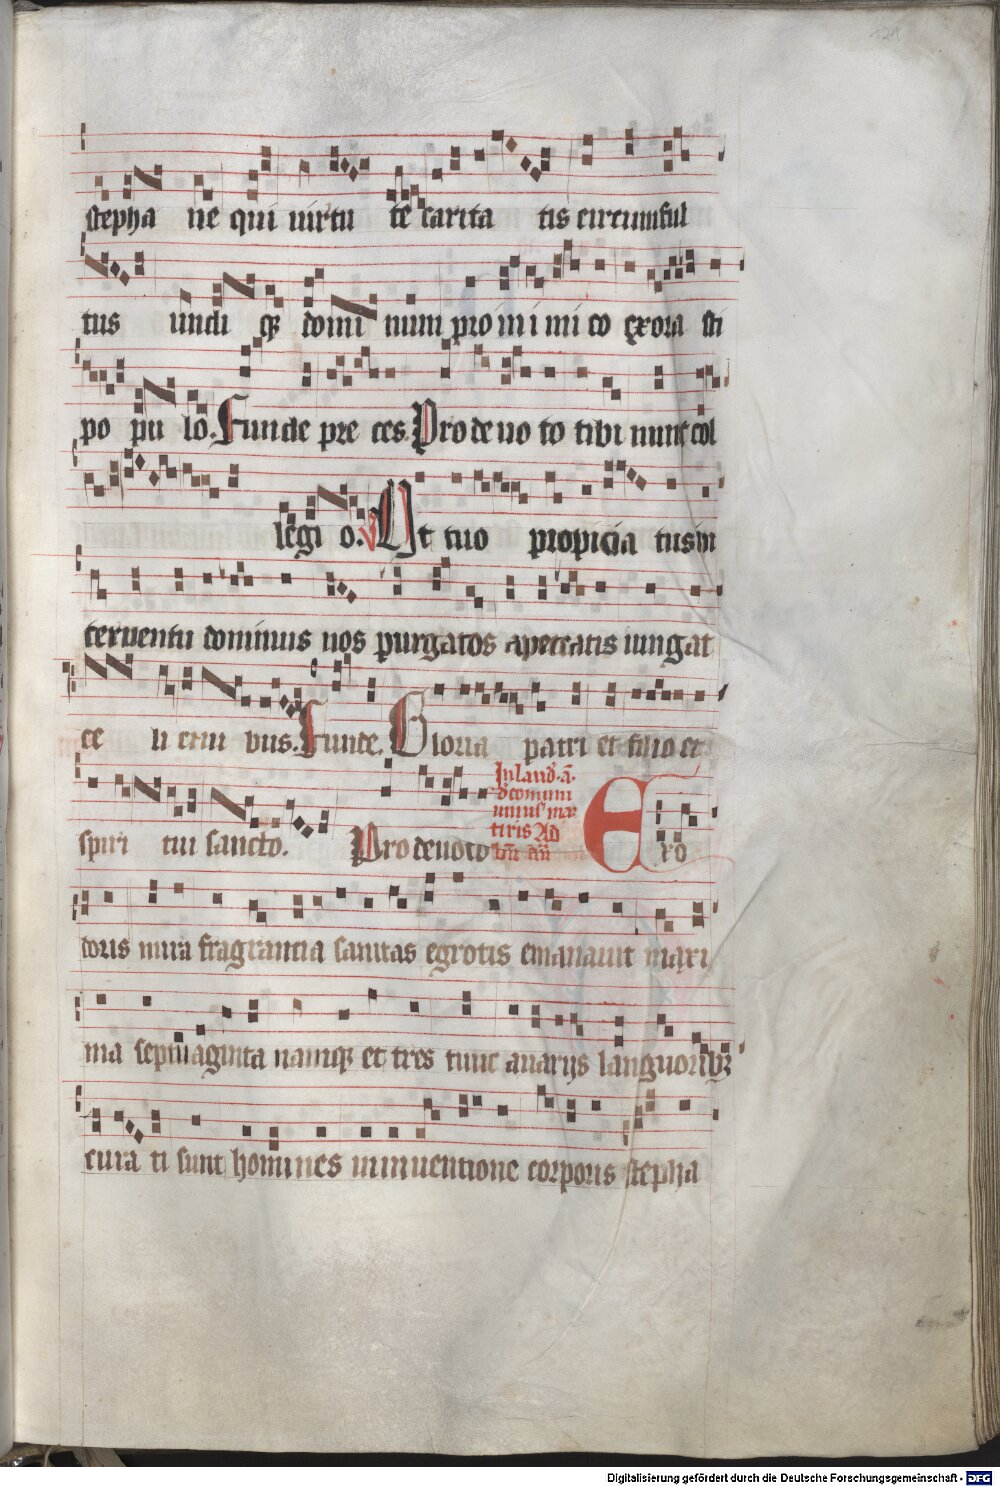 121
stepha ne qui uirtu te carita tis circumful
tus undi qꝫ domi num pro ini mi co exora sti
po pu lo. Funde pre ces. Pro de uo to tibi nunc col
legi o. V Ut tuo propicia tus in
teruentu dominus nos purgatos a peccatis iungat
ce li ciui bus. Funde. Gloria patri et filio et
spiri tui sancto. Pro deuoto
In laud. a.
d̄ comuni
unius mar
tiris Ad
bn̄ an̄
Exo
doris mira fragrancia sanitas egrotis emanauit maxi
ma septuaginta namqꝫ et tres tunc a uarijs languoribꝫ
cura ti sunt homines in inuentione corporis stepha
Digitalisierung gefördert durch die Deutsche Forschungsgemeinschaft - DFG